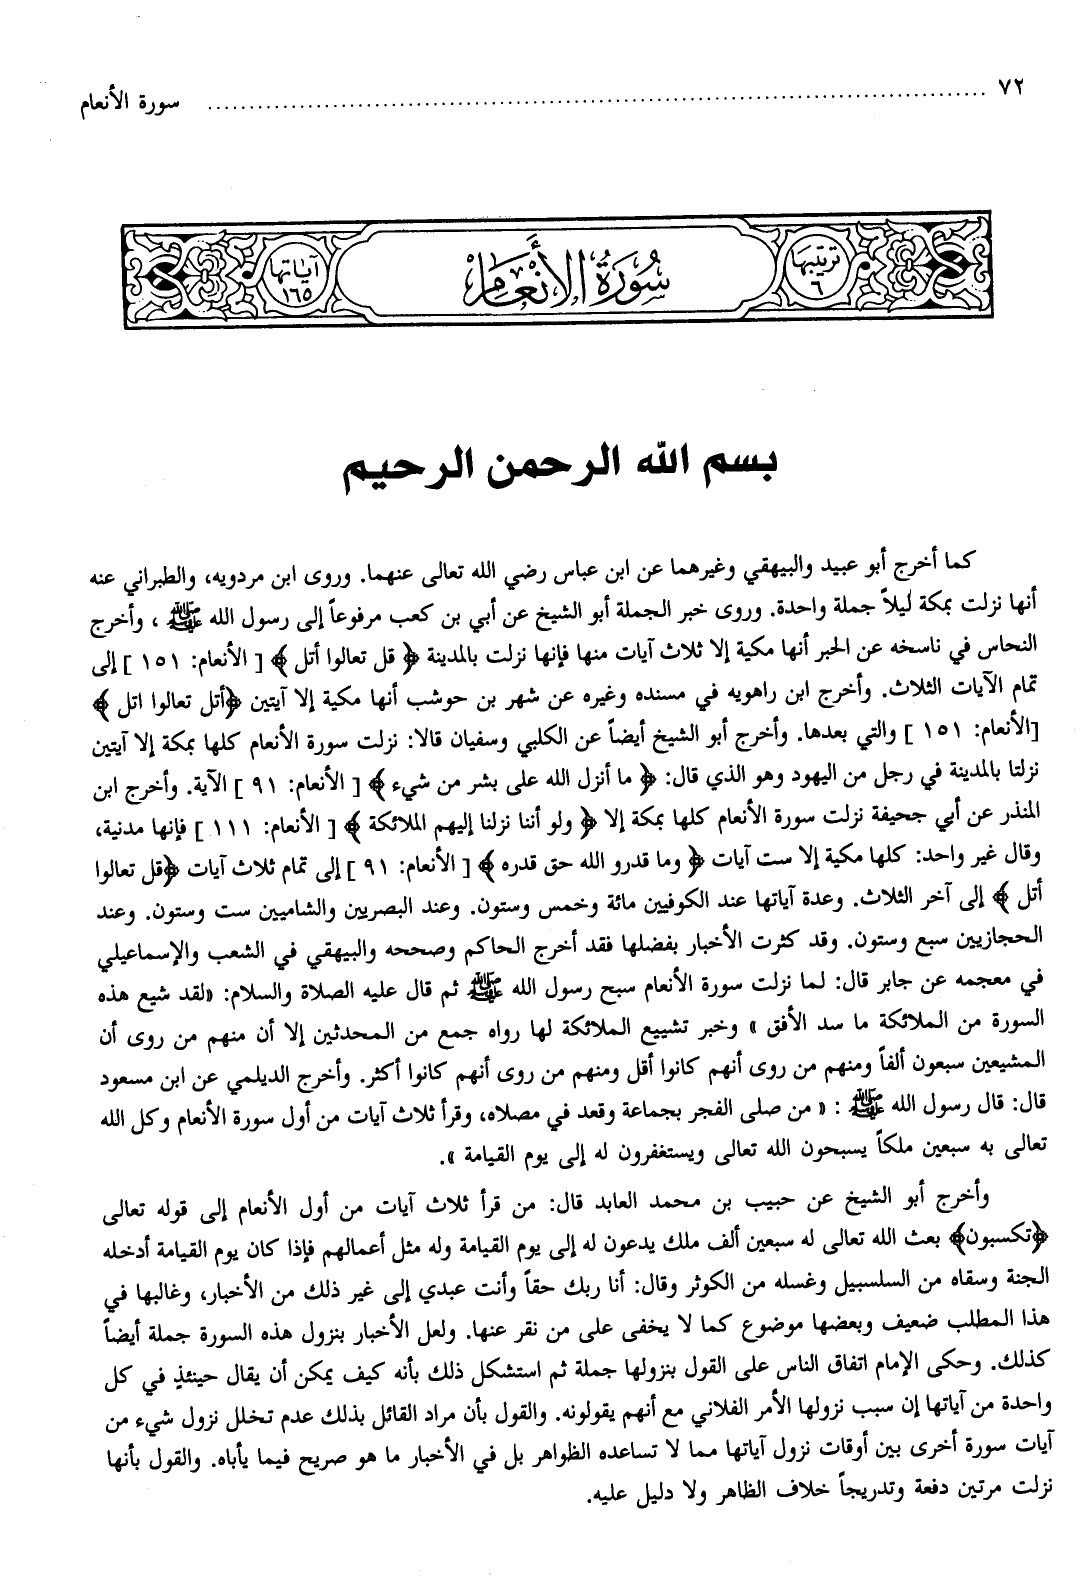 ٧٢ ........................................ سورة الأنعام
ترتيبها
٦
سُورَةُ الأَنْعَامِ
آياتها
١٦٥
بسم الله الرحمن الرحيم
كما أخرج أبو عبيد والبيهقي وغيرهما عن ابن عباس رضي الله تعالى عنهما. وروى ابن مردويه، والطبراني عنه
أنها نزلت بمكة ليلاً جملة واحدة. وروى خبر الجملة أبو الشيخ عن أبي بن كعب مرفوعاً إلى رسول الله ﷺ ، وأخرج
النحاس في ناسخه عن الحبر أنها مكية إلا ثلاث آيات منها فإنها نزلت بالمدينة ﴿ قل تعالوا أتل ﴾ [ الأنعام: ١٥١ ] إلى
تمام الآيات الثلاث. وأخرج ابن راهويه في مسنده وغيره عن شهر بن حوشب أنها مكية إلا آيتين ﴿أتل تعالوا اتل ﴾
[الأنعام: ١٥١ ] والتي بعدها. وأخرج أبو الشيخ أيضاً عن الكلبي وسفيان قالا: نزلت سورة الأنعام كلها بمكة إلا آيتين
نزلتا بالمدينة في رجل من اليهود وهو الذي قال: ﴿ ما أنزل الله على بشر من شيء ﴾ [ الأنعام: ٩١ ] الآية. وأخرج ابن
المنذر عن أبي جحيفة نزلت سورة الأنعام كلها بمكة إلا ﴿ ولو أننا نزلنا إليهم الملائكة ﴾ [ الأنعام: ١١١ ] فإنها مدنية،
وقال غير واحد: كلها مكية إلا ست آيات ﴿ وما قدرو الله حق قدره ﴾ [ الأنعام: ٩١ ] إلى تمام ثلاث آيات ﴿قل تعالوا
أتل ﴾ إلى آخر الثلاث. وعدة آياتها عند الكوفيين مائة وخمس وستون. وعند البصريين والشاميين ست وستون. وعند
الحجازيين سبع وستون. وقد كثرت الأخبار بفضلها فقد أخرج الحاكم وصححه والبيهقي في الشعب والإسماعيلي
في معجمه عن جابر قال: لما نزلت سورة الأنعام سبح رسول الله ﷺ ثم قال عليه الصلاة والسلام: «لقد شيع هذه
السورة من الملائكة ما سد الأفق » وخبر تشييع الملائكة لها رواه جمع من المحدثين إلا أن منهم من روى أن
المشيعين سبعون ألفاً ومنهم من روى أنهم كانوا أقل ومنهم من روى أنهم كانوا أكثر. وأخرج الديلمي عن ابن مسعود
قال: قال رسول الله ﷺ : « من صلى الفجر بجماعة وقعد في مصلاه، وقرأ ثلاث آيات من أول سورة الأنعام وكل الله
تعالى به سبعين ملكاً يسبحون الله تعالى ويستغفرون له إلى يوم القيامة ».
وأخرج أبو الشيخ عن حبيب بن محمد العابد قال: من قرأ ثلاث آيات من أول الأنعام إلى قوله تعالى
﴿تكسبون﴾ بعث الله تعالى له سبعين ألف ملك يدعون له إلى يوم القيامة وله مثل أعمالهم فإذا كان يوم القيامة أدخله
الجنة وسقاه من السلسبيل وغسله من الكوثر وقال: أنا ربك حقاً وأنت عبدي إلى غير ذلك من الأخبار، وغالبها في
هذا المطلب ضعيف وبعضها موضوع كما لا يخفى على من نقر عنها. ولعل الأخبار بنزول هذه السورة جملة أيضاً
كذلك. وحكى الإمام اتفاق الناس على القول بنزولها جملة ثم استشكل ذلك بأنه كيف يمكن أن يقال حينئذٍ في كل
واحدة من آياتها إن سبب نزولها الأمر الفلاني مع أنهم يقولونه. والقول بأن مراد القائل بذلك عدم تخلل نزول شيء من
آيات سورة أخرى بين أوقات نزول آياتها مما لا تساعده الظواهر بل في الأخبار ما هو صريح فيما يأباه. والقول بأنها
نزلت مرتين دفعة وتدريجاً خلاف الظاهر ولا دليل عليه.